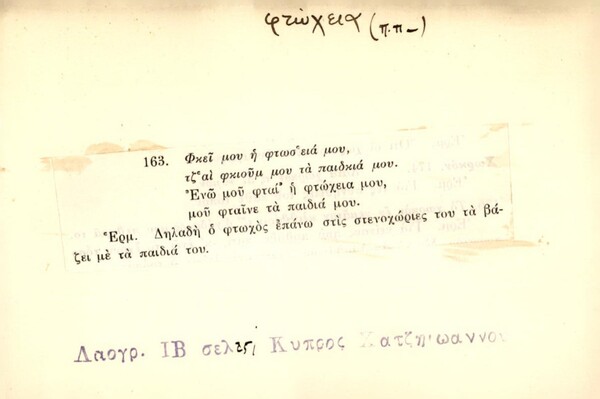 φτώχεια (π.π-)
163. Φκεῖ μου ἡ φτωσ̌ειά μου,
τζ̌αὶ φκιοῦμ μου τὰ παιδκιά μου.
Ἐνῶ μοῦ φταί' ἡ φτώχεια μου,
μοῦ φταῖνε τὰ παιδιά μου.
Ἑρμ. Δηλαδὴ ὁ φτωχὸς ἐπάνω στὶς στενοχώριες του τὰ βά-
ζει μὲ τὰ παιδιά του.
Λαογρ. ΙΒ σελ. Κυπρος Χατζηιωαννου